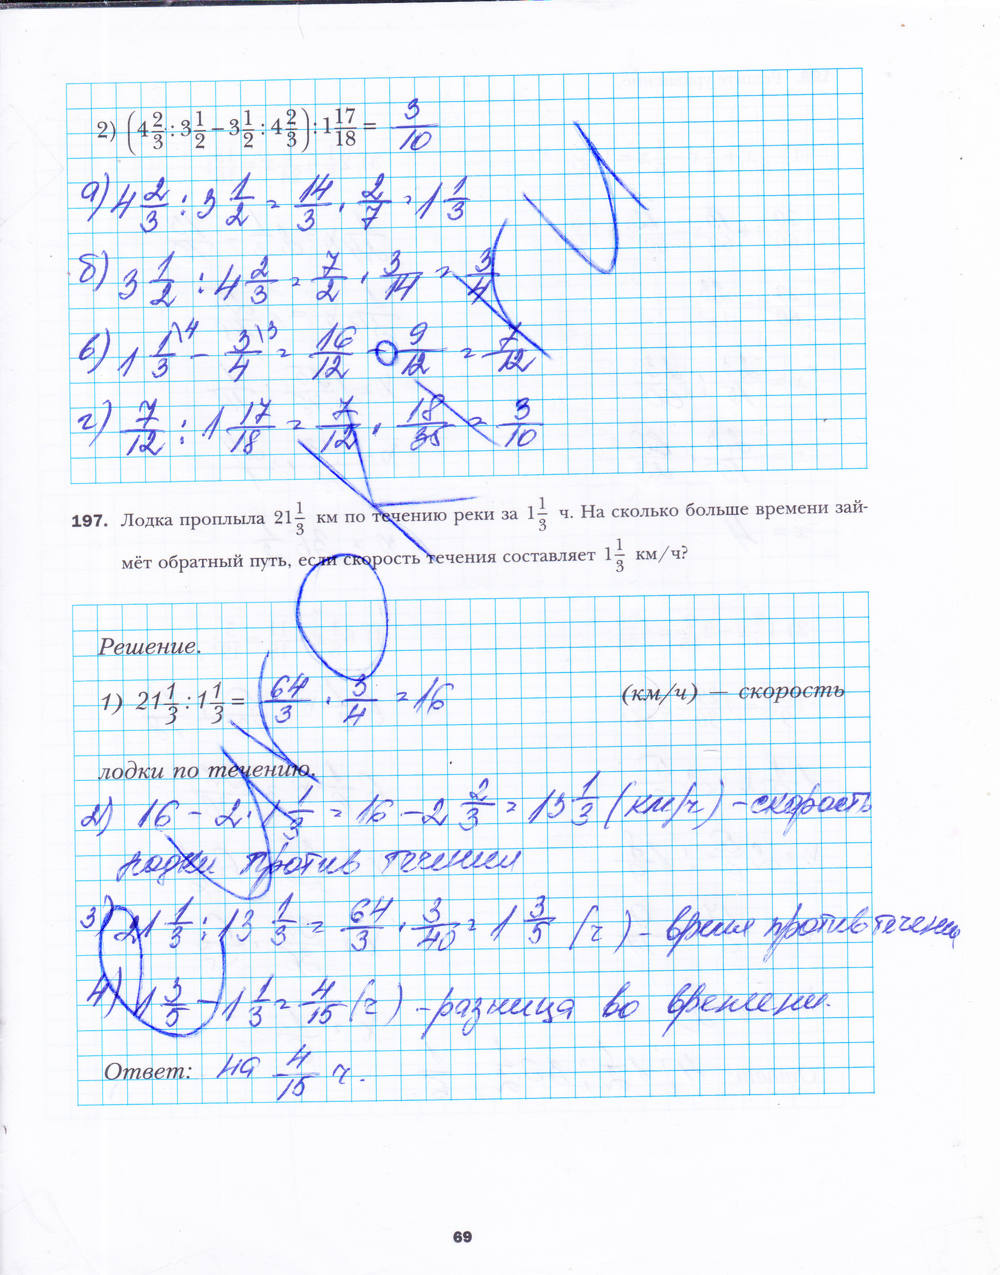 2) (4 2/3 : 3 1/2 − 3 1/2 : 4 2/3) : 1 17/18 = 3/10
а) 4 2/3 : 3 1/2 = 14/3 · 2/7 = 1 1/3
б) 3 1/2 : 4 2/3 = 7/2 · 3/14 = 3/4
в) 1 1/3 \4 − 3/4 \3 = 16/12 − 9/12 = 7/12
г) 7/12 : 1 17/18 = 7/12 · 18/35 = 3/10
197. Лодка проплыла 21 1/3 км по течению реки за 1 1/3 ч. На сколько больше времени зай-
мёт обратный путь, если скорость течения составляет 1 1/3 км/ч?
Решение.
1) 21 1/3 : 1 1/3 = 64/3 · 3/4 = 16 (км/ч) — скорость
лодки по течению.
2) 16 − 2 · 1 1/3 = 16 − 2 2/3 = 13 1/3 (км/ч) − скорость
лодки против течения
3) 21 1/3 : 13 1/3 = 64/3 · 3/40 = 1 3/5 (ч) − время против течения
4) 1 3/5 − 1 1/3 = 4/15 (ч) − разница во времени.
Ответ: на 4/15 ч.
69